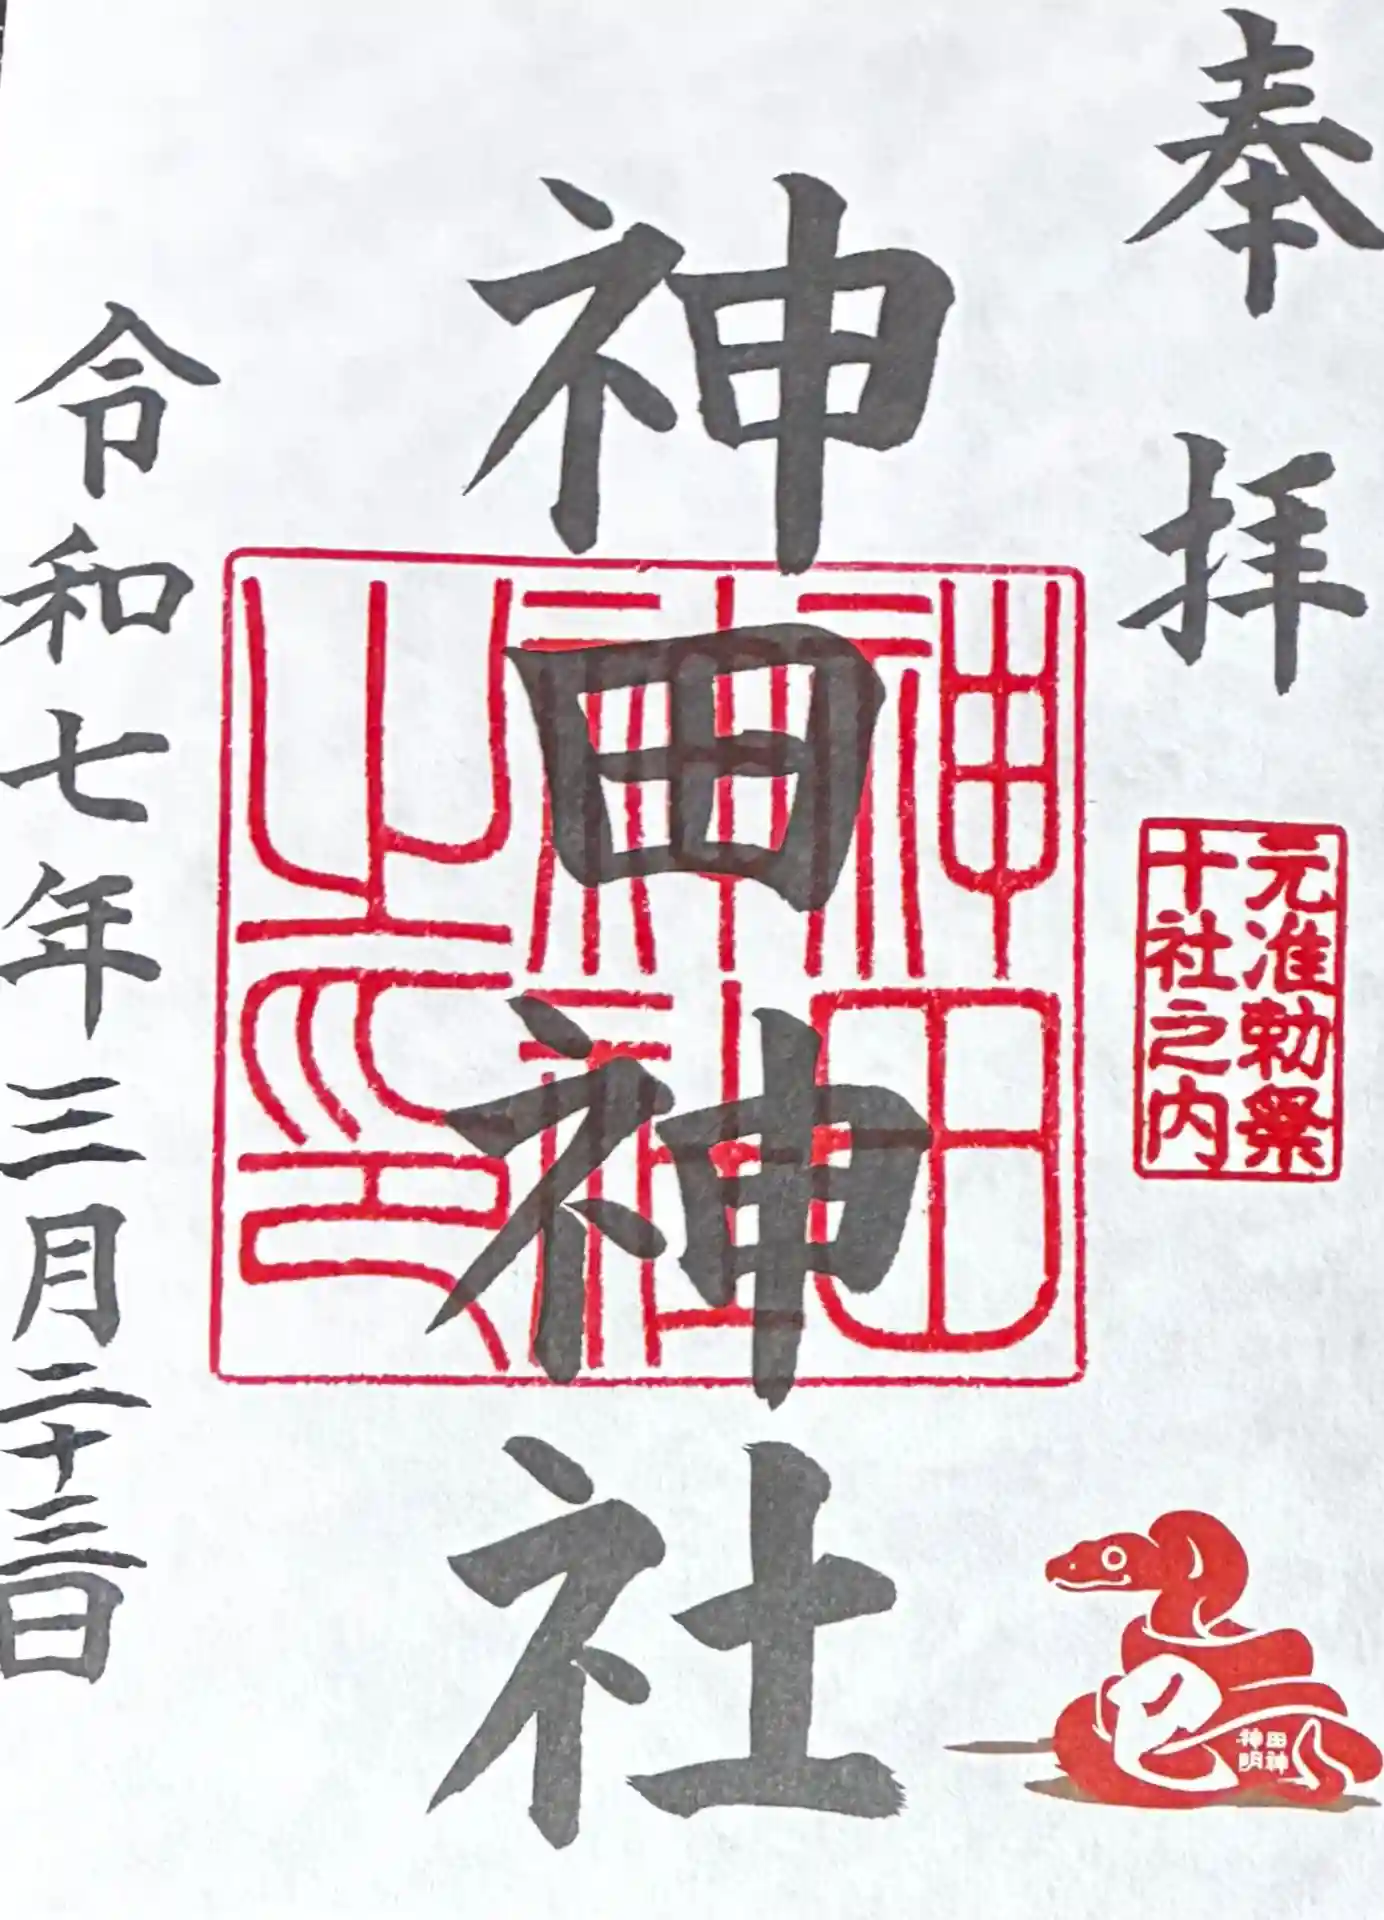 奉拝
元准勅祭
十社之内
巳
田神
神明
神田神社
神田
神社
之印
令和七年三月二十三日